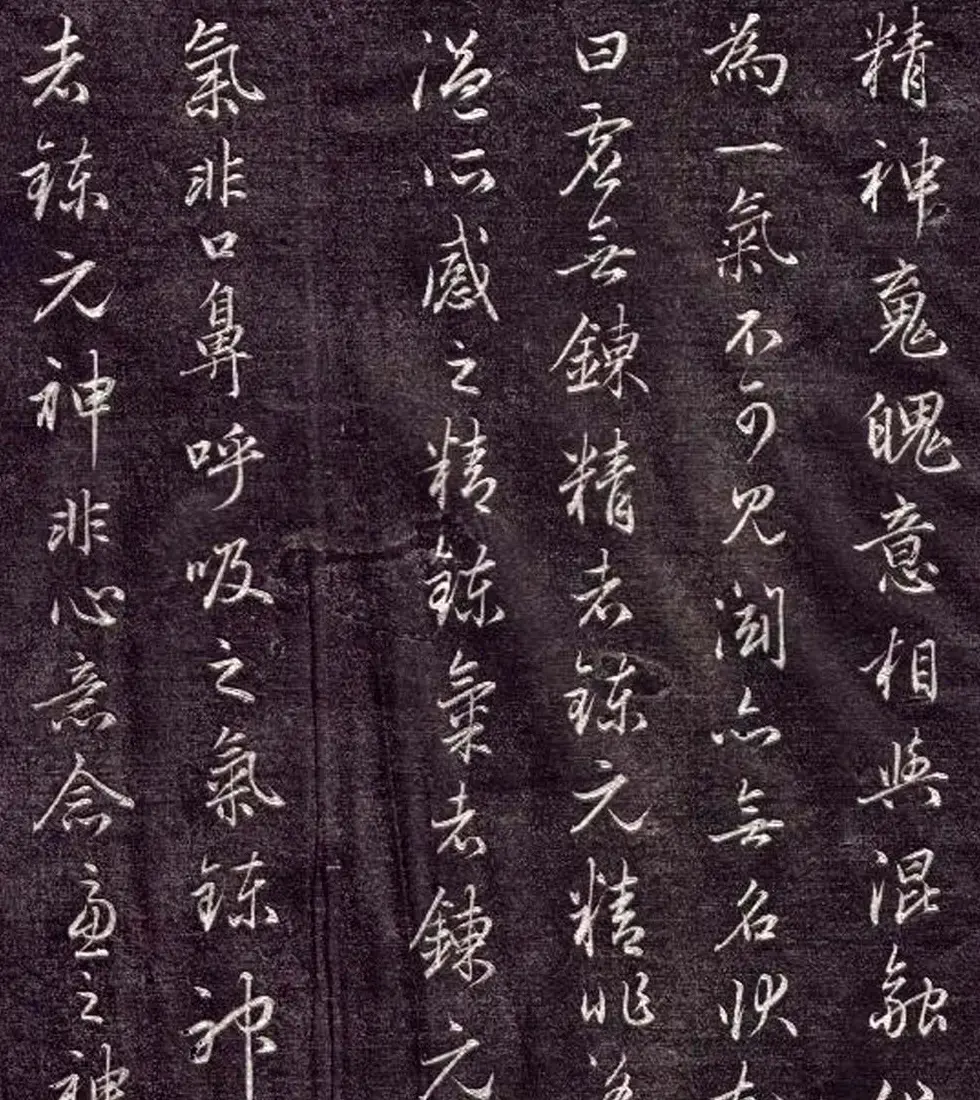 精神魂魄意相與混融
為一氣不可見聞亦無名狀故
曰虛無鍊精者鍊元精非
溢所感之精鍊氣者鍊元
氣非口鼻呼吸之氣鍊神
者鍊元神非心意念慮之神